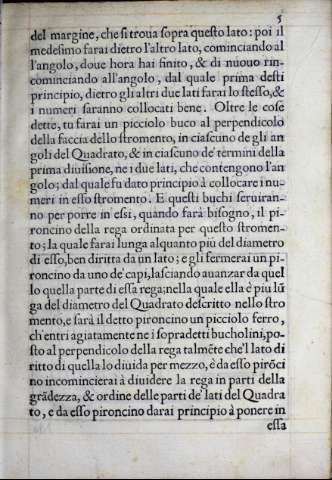 5
del margine, che si troua sopra questo lato: poi il
medesimo farai dietro l'altro lato, cominciando al
l'angolo, doue hora hai finito, & di nuouo rin-
cominciando all'angolo, dal quale prima desti
principio, dietro gli altri due lati farai lo stesso, &
i numeri saranno collocati bene. Oltre le cose
dette, tu farai un picciolo buco al perpendicolo
della faccia dello stromento, in ciascuno de gli an
goli del Quadrato, & in ciascuno de' termini della
prima diuisione, ne i due lati, che contengono l'an
golo; dal quale fu dato principio à collocare i nu-
meri in esso stromento. E questi buchi seruiran-
no per porre in essi, quando farà bisogno, il pi-
roncino della rega ordinata per questo stromen-
to; la quale farai lunga alquanto più del diametro
di esso, ben diritta da un lato; e gli fermerai un pi-
roncino da uno de' capi, lasciando auanzar da quel
lo quella parte di essa rega; nella quale ella è più lũ
ga del diametro del Quadrato descritto nello stro
mento, e sarà il detto pironcino un picciolo ferro,
ch'entri agiatamente ne i sopradetti bucholini, po-
sto al perpendicolo della rega talmẽte che'l lato di
ritto di quella lo diuida per mezzo, è da esso pirõci
no incomincierai à diuidere la rega in parti della
grãdezza, & ordine delle parti de' lati del Quadra
to, e da esso pironcino darai principio à ponere in
essa